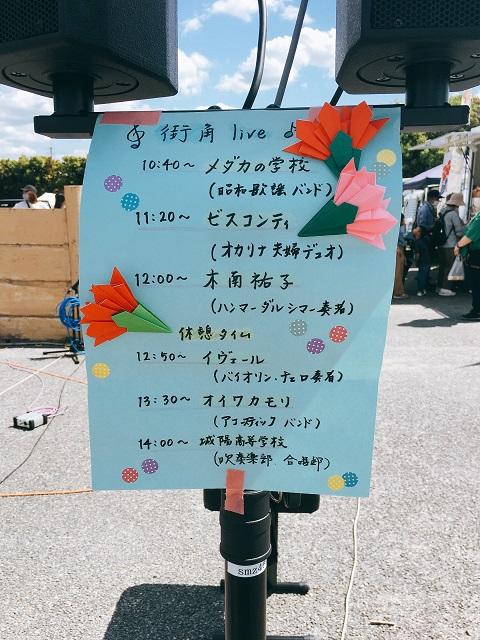 街角 live
10:40〜 メダカの学校
(昭和歌謡バンド)
11:20〜 ビスコンティ
(オカリナ夫婦デュオ)
12:00〜 木南祐子
(ハンマーダルシマー奏者)
休憩タイム
12:50〜 イヴェール
(バイオリン・チェロ奏者)
13:30〜 オイワカモリ
(アコースティックバンド)
14:00〜 城陽高等学校
(吹奏楽部、合唱部)